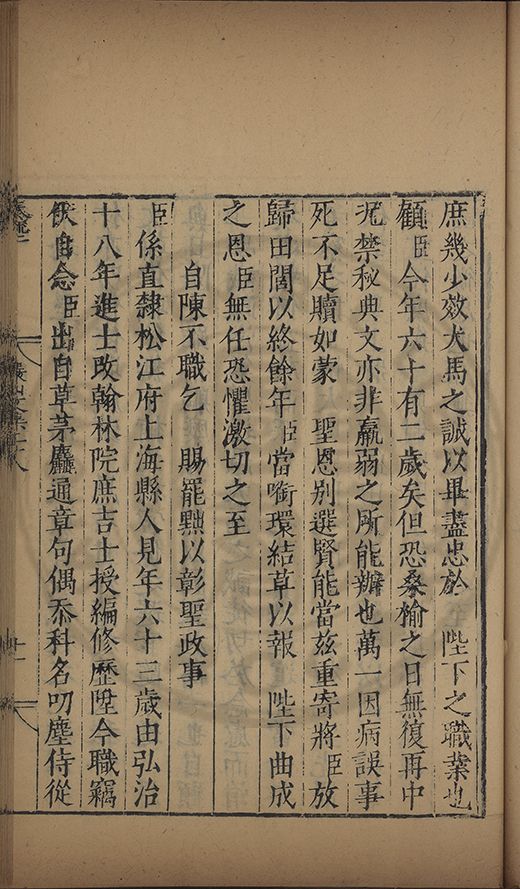 庶幾少效犬馬之誠以畢盡忠於 陛下之職業也
顧臣今年六十有二歲矣但恐桑榆之日無復再中
況禁秘典文亦非羸弱之所能辦也萬一因病誤事
死不足贖如蒙 聖恩別選賢能當茲重寄將臣放
歸田閭以終餘年臣當啣環結草以報 陛下曲成
之恩臣無任恐懼激切之至
自陳不職乞 賜罷黜以彰聖政事
臣係直隸松江府上海縣人見年六十三歲由弘治
十八年進士改翰林院庶吉士授編修歷陞今職竊
伏自念臣出自草茅麤通章句偶忝科名叨塵侍從